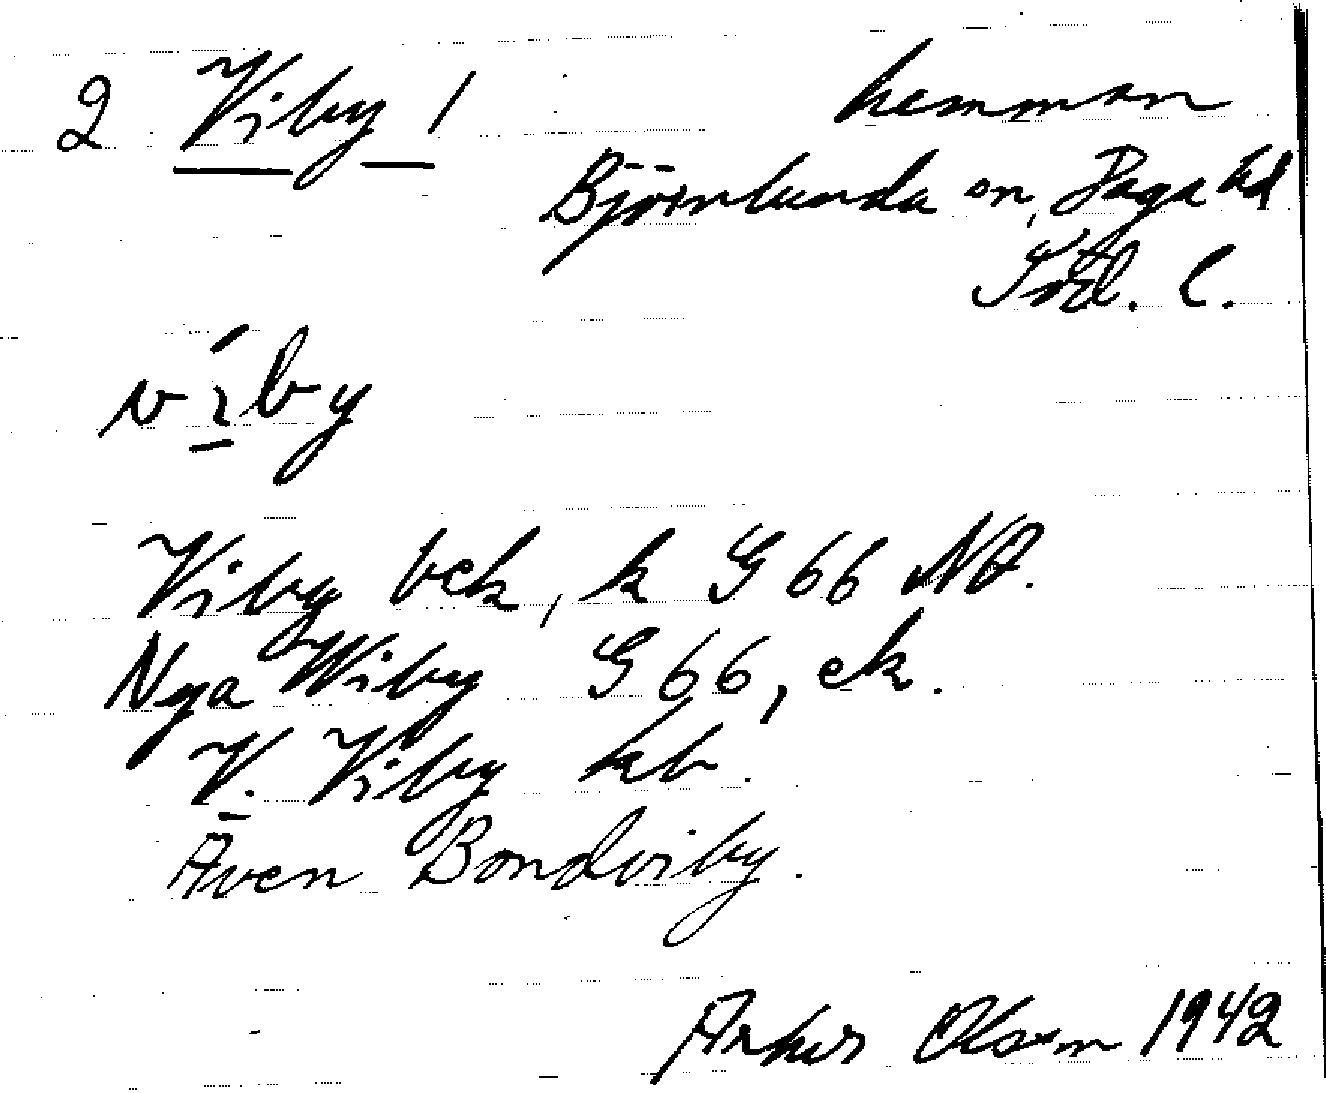 2 Viby 1 hemman
Björnlunda sn, Daga hd
Södl. C.
víby
Viby bek, k G 66 NO.
Nya Wiby G 66, ek.
V. Viby kb.
Även Bondviby.
Arthur Olson 1942